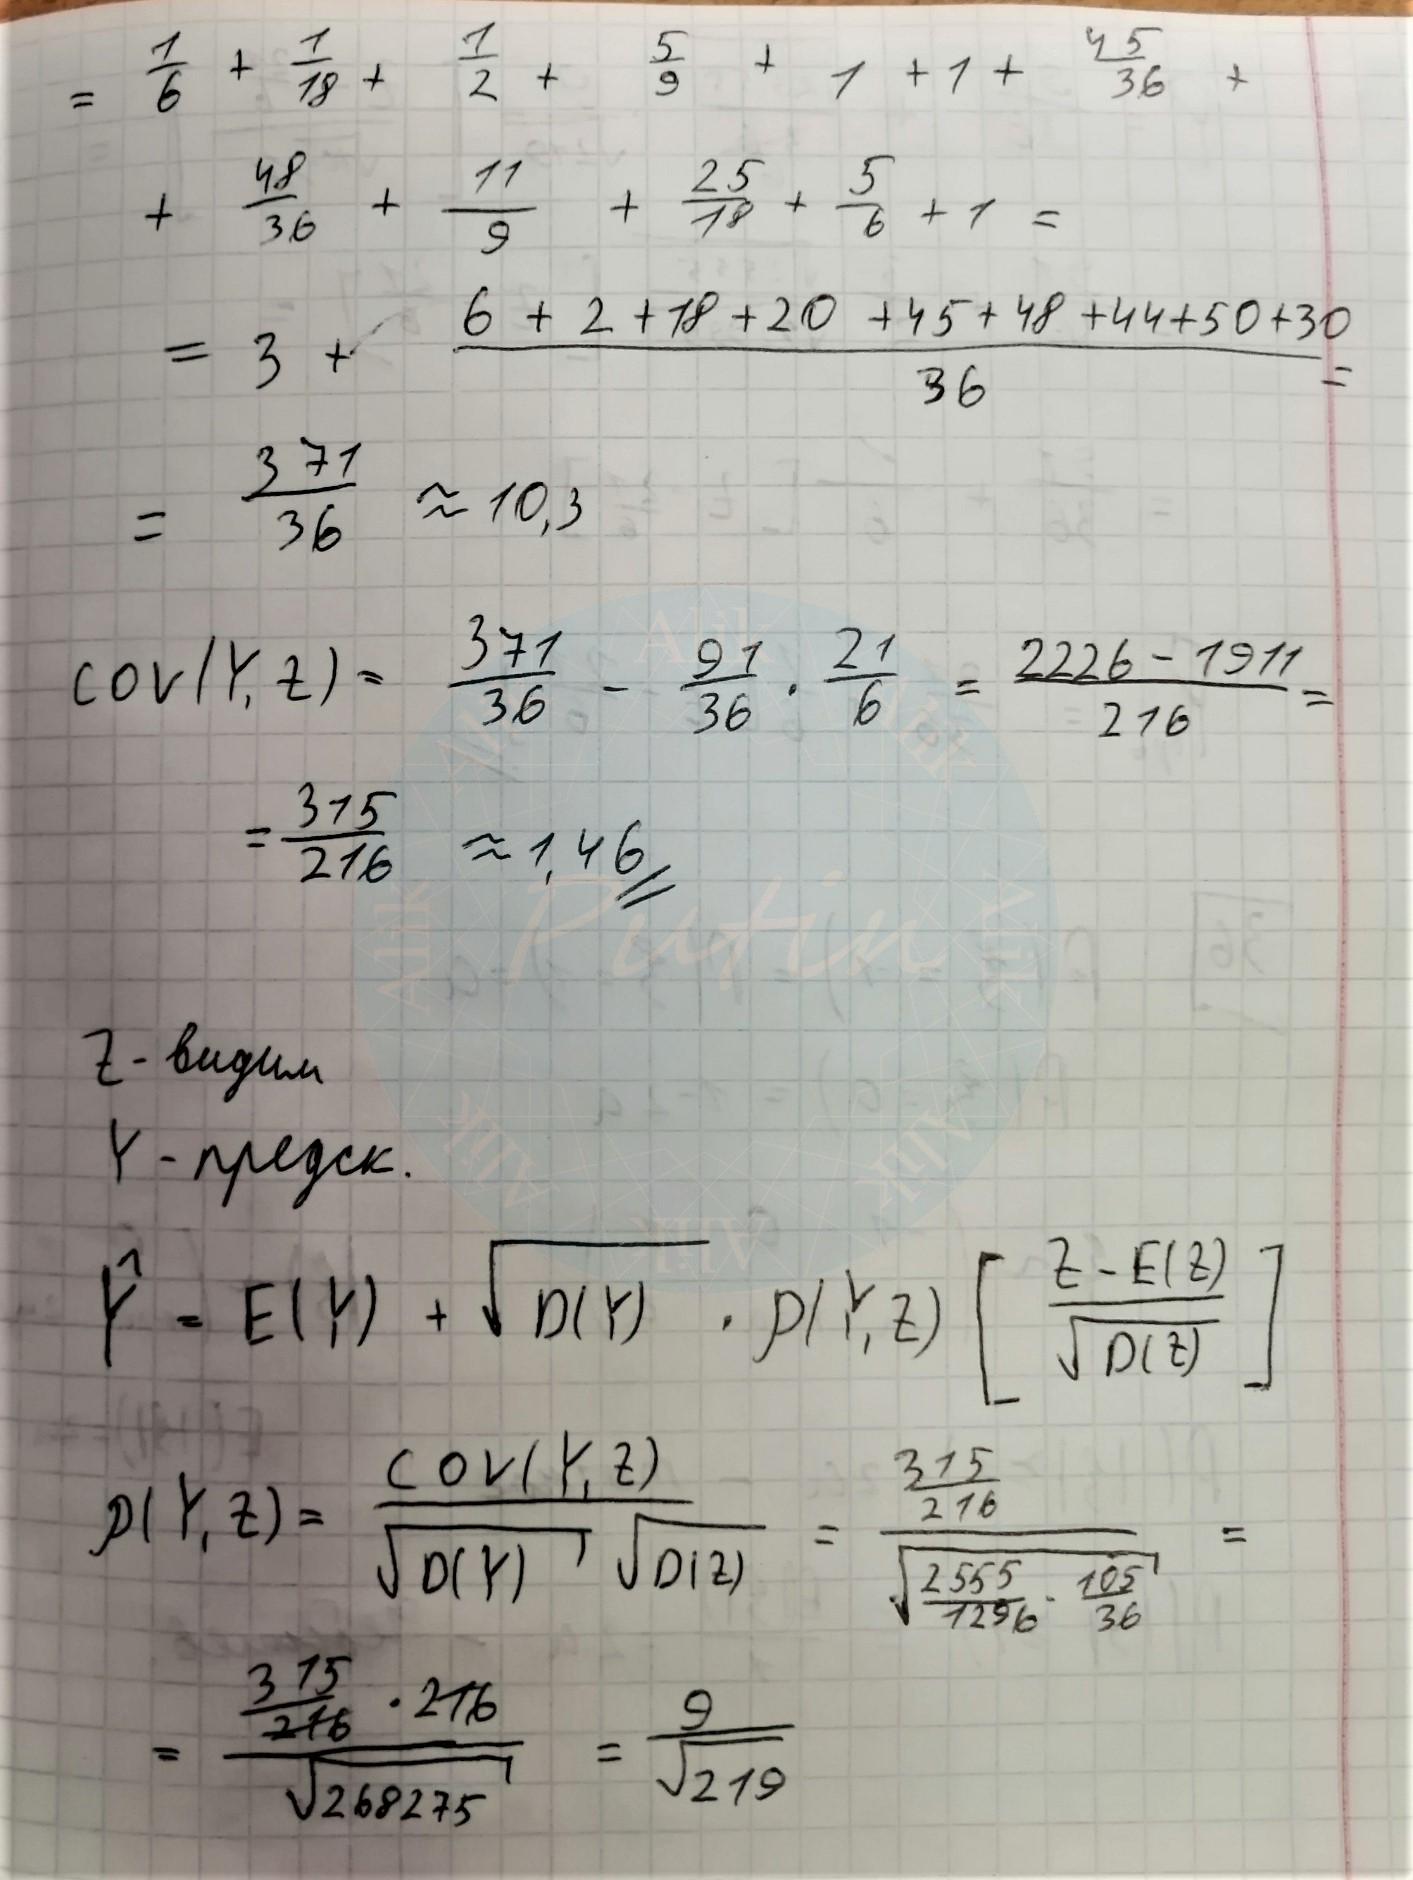 = 1/6 + 1/18 + 1/2 + 5/9 + 1 + 1 + 45/36 +
+ 48/36 + 11/9 + 25/18 + 5/6 + 1 =
= 3 + (6 + 2 + 18 + 20 + 45 + 48 + 44 + 50 + 30)/36 =
= 371/36 ≈ 10,3
cov(Y,Z) = 371/36 - 91/36 · 21/6 = (2226 - 1911)/216 =
= 315/216 ≈ 1,46
Z - видим
Y - предск.
Ŷ = E(Y) + √D(Y) · ρ(Y,Z) [(Z - E(Z))/√D(Z)]
ρ(Y,Z) = cov(Y,Z)/(√D(Y) √D(Z)) = (315/216)/√(2555/1296 · 105/36) =
= (315/216 · 216)/√268275 = 9/√219
Alik
Alik
Alik
Alik
Putin
Alik
Alik
Alik
Alik